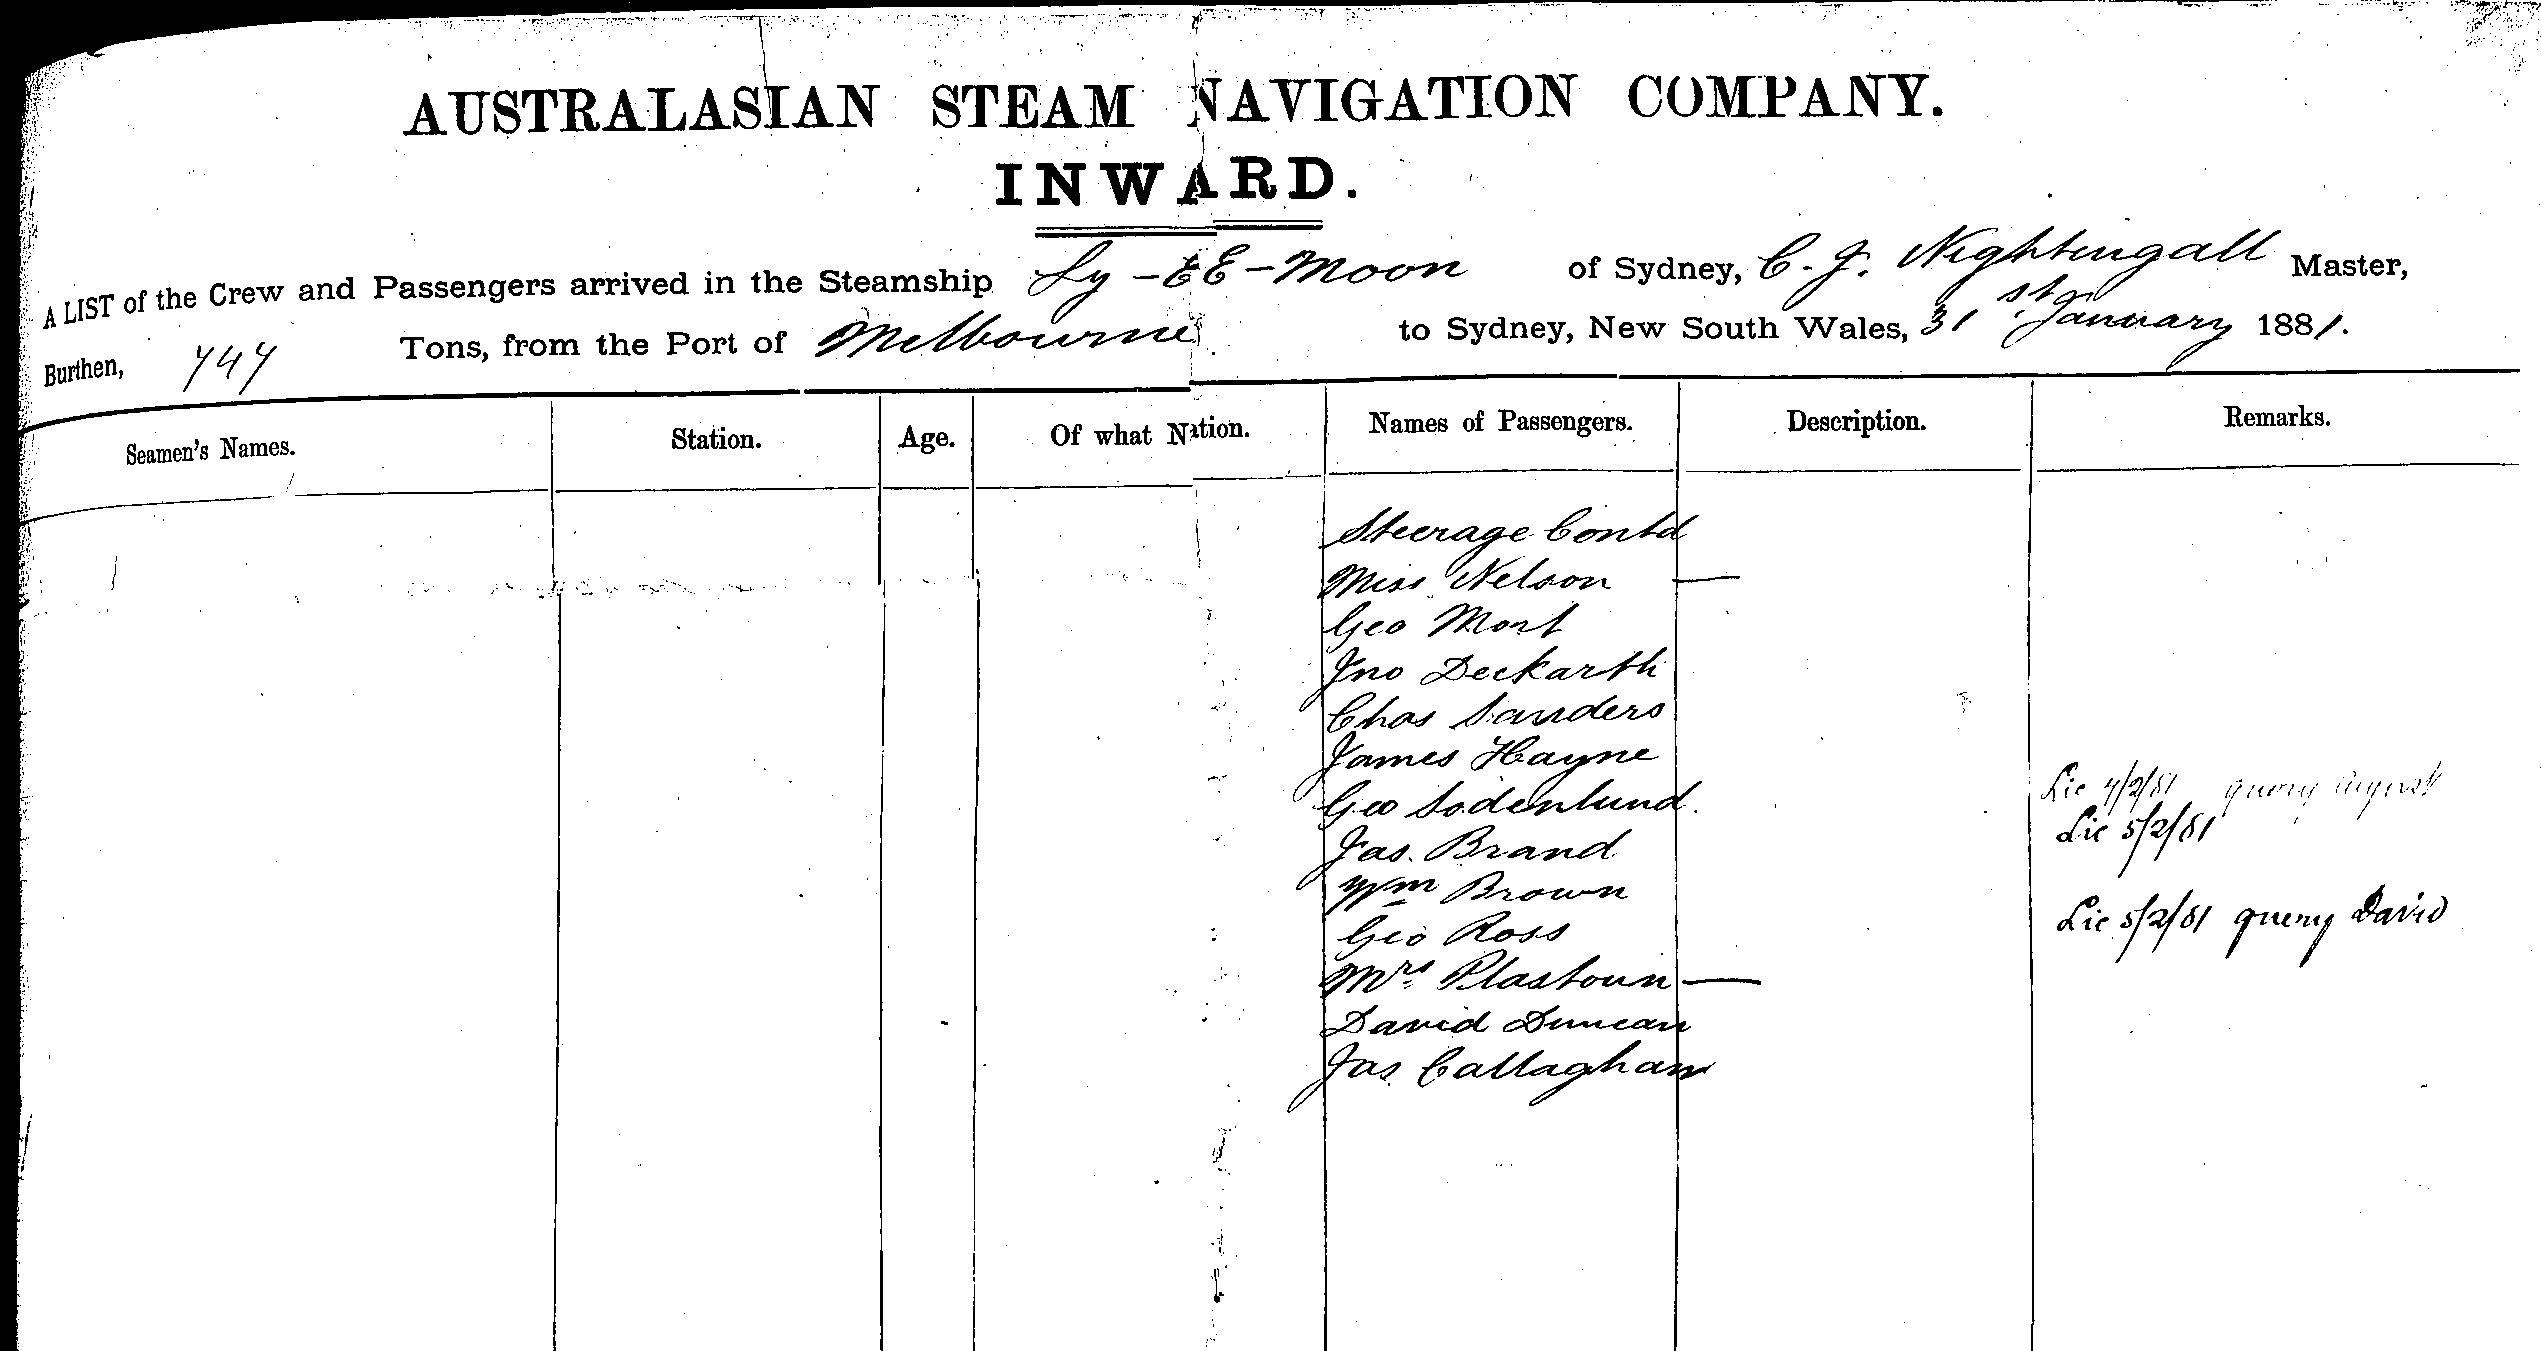 AUSTRALASIAN STEAM NAVIGATION COMPANY.
INWARD.
A LIST of the Crew and Passengers arrived in the Steamship Ly-EE-Moon of Sydney, C. J. Nightingall Master,
Burthen, 747 Tons, from the Port of Melbourne to Sydney, New South Wales, 31st January 1881.
Seamen's Names. Station. Age. Of what Nation. Names of Passengers. Description. Remarks.
Steerage Contd
Miss Nelson —
Geo Mort
Jno Deckarth
Chas Sanders
James Hayne
Geo Sodenlund. Lic 4/2/81 query August
Jas. Brand Lic 5/2/81
Wm Brown
Geo Ross Lic 5/2/81 query David
Mrs Plastoun —
David Duncan
Jas Callaghan